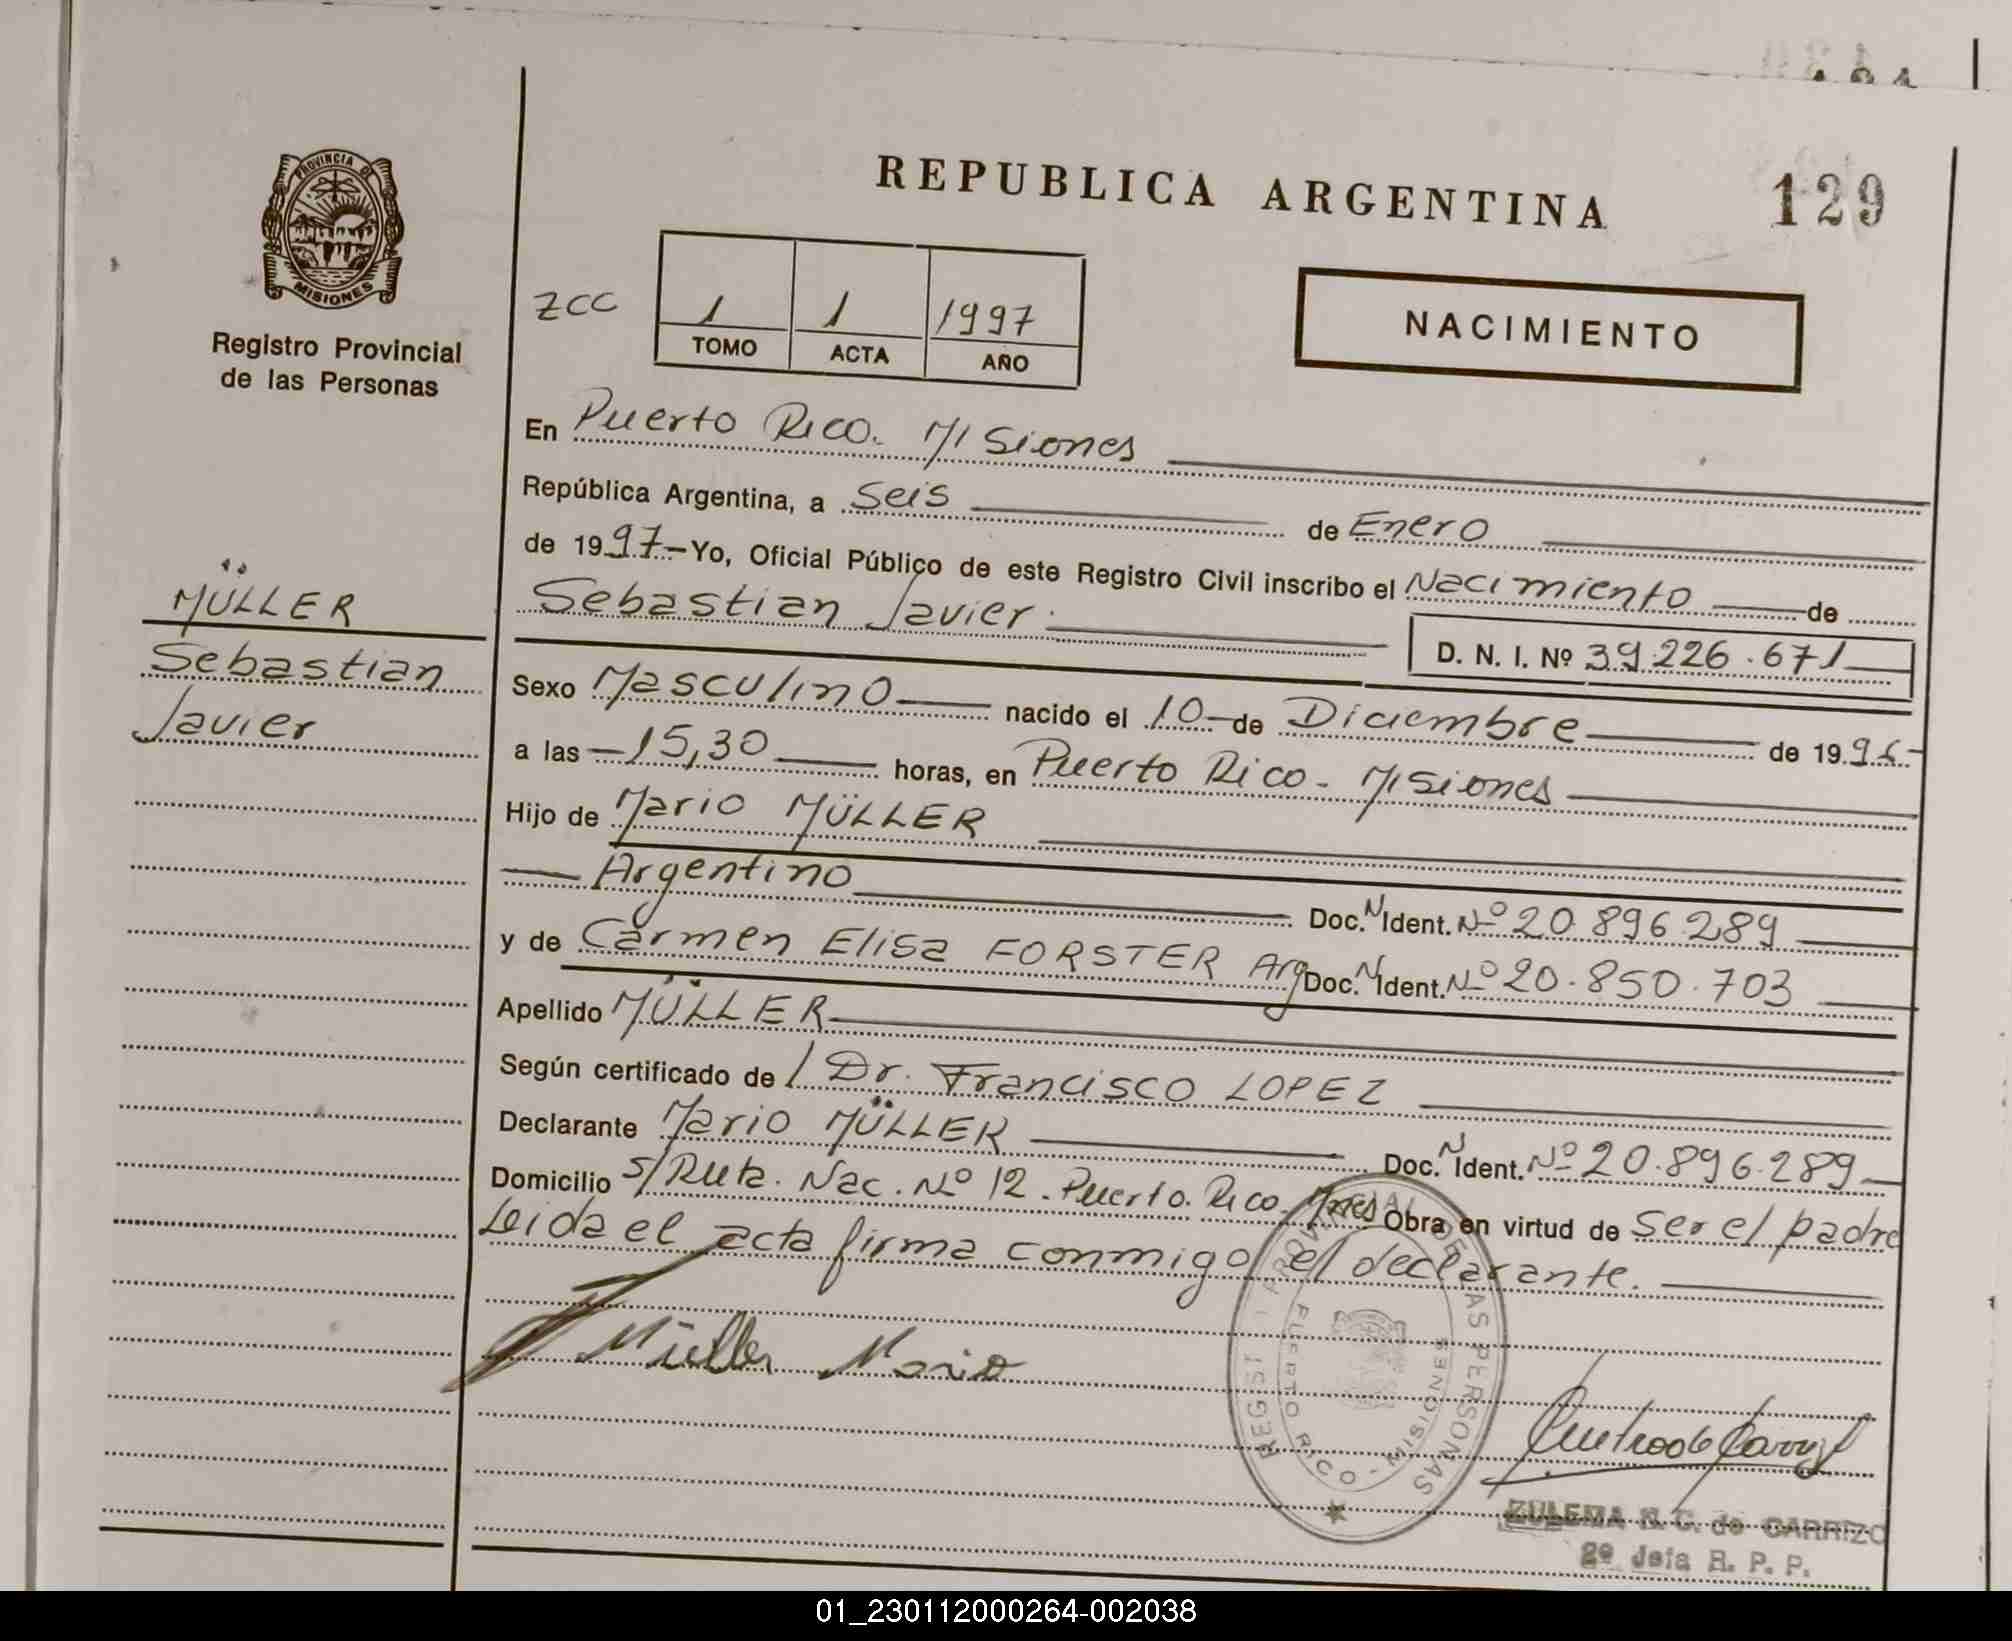 129
REPUBLICA ARGENTINA
PROVINCIA DE
MISIONES
Registro Provincial
de las Personas
ZCC
1 1 1997
TOMO ACTA AÑO
NACIMIENTO
En Puerto Rico. Misiones
República Argentina, a Seis de Enero
de 1997-Yo, Oficial Público de este Registro Civil inscribo el Nacimiento de
Sebastian Javier.
D. N. I. Nº 39.226.671
MÜLLER
Sebastian
Javier
Sexo Masculino nacido el 10 de Diciembre de 1996
a las 15,30 horas, en Puerto Rico - Misiones
Hijo de Mario MÜLLER
Argentino Doc. N Ident. Nº 20.896.289
y de Carmen Elisa FORSTER Arg Doc. N Ident. Nº 20.850.703
Apellido MÜLLER
Según certificado de / Dr. Francisco LOPEZ
Declarante Mario MÜLLER Doc. N Ident. Nº 20.896.289
Domicilio s/Ruta. Nac. Nº 12. Puerto. Rico. Mnes Obra en virtud de ser el padre
Leida el acta firma conmigo el declarante.
Müller Mario
REGIST PROVINCIAL DE LAS PERSONAS
PUERTO RICO - MISIONES
ZULEMA N. C. de CARRIZO
2º Jefa R. P. P.
01_230112000264-002038